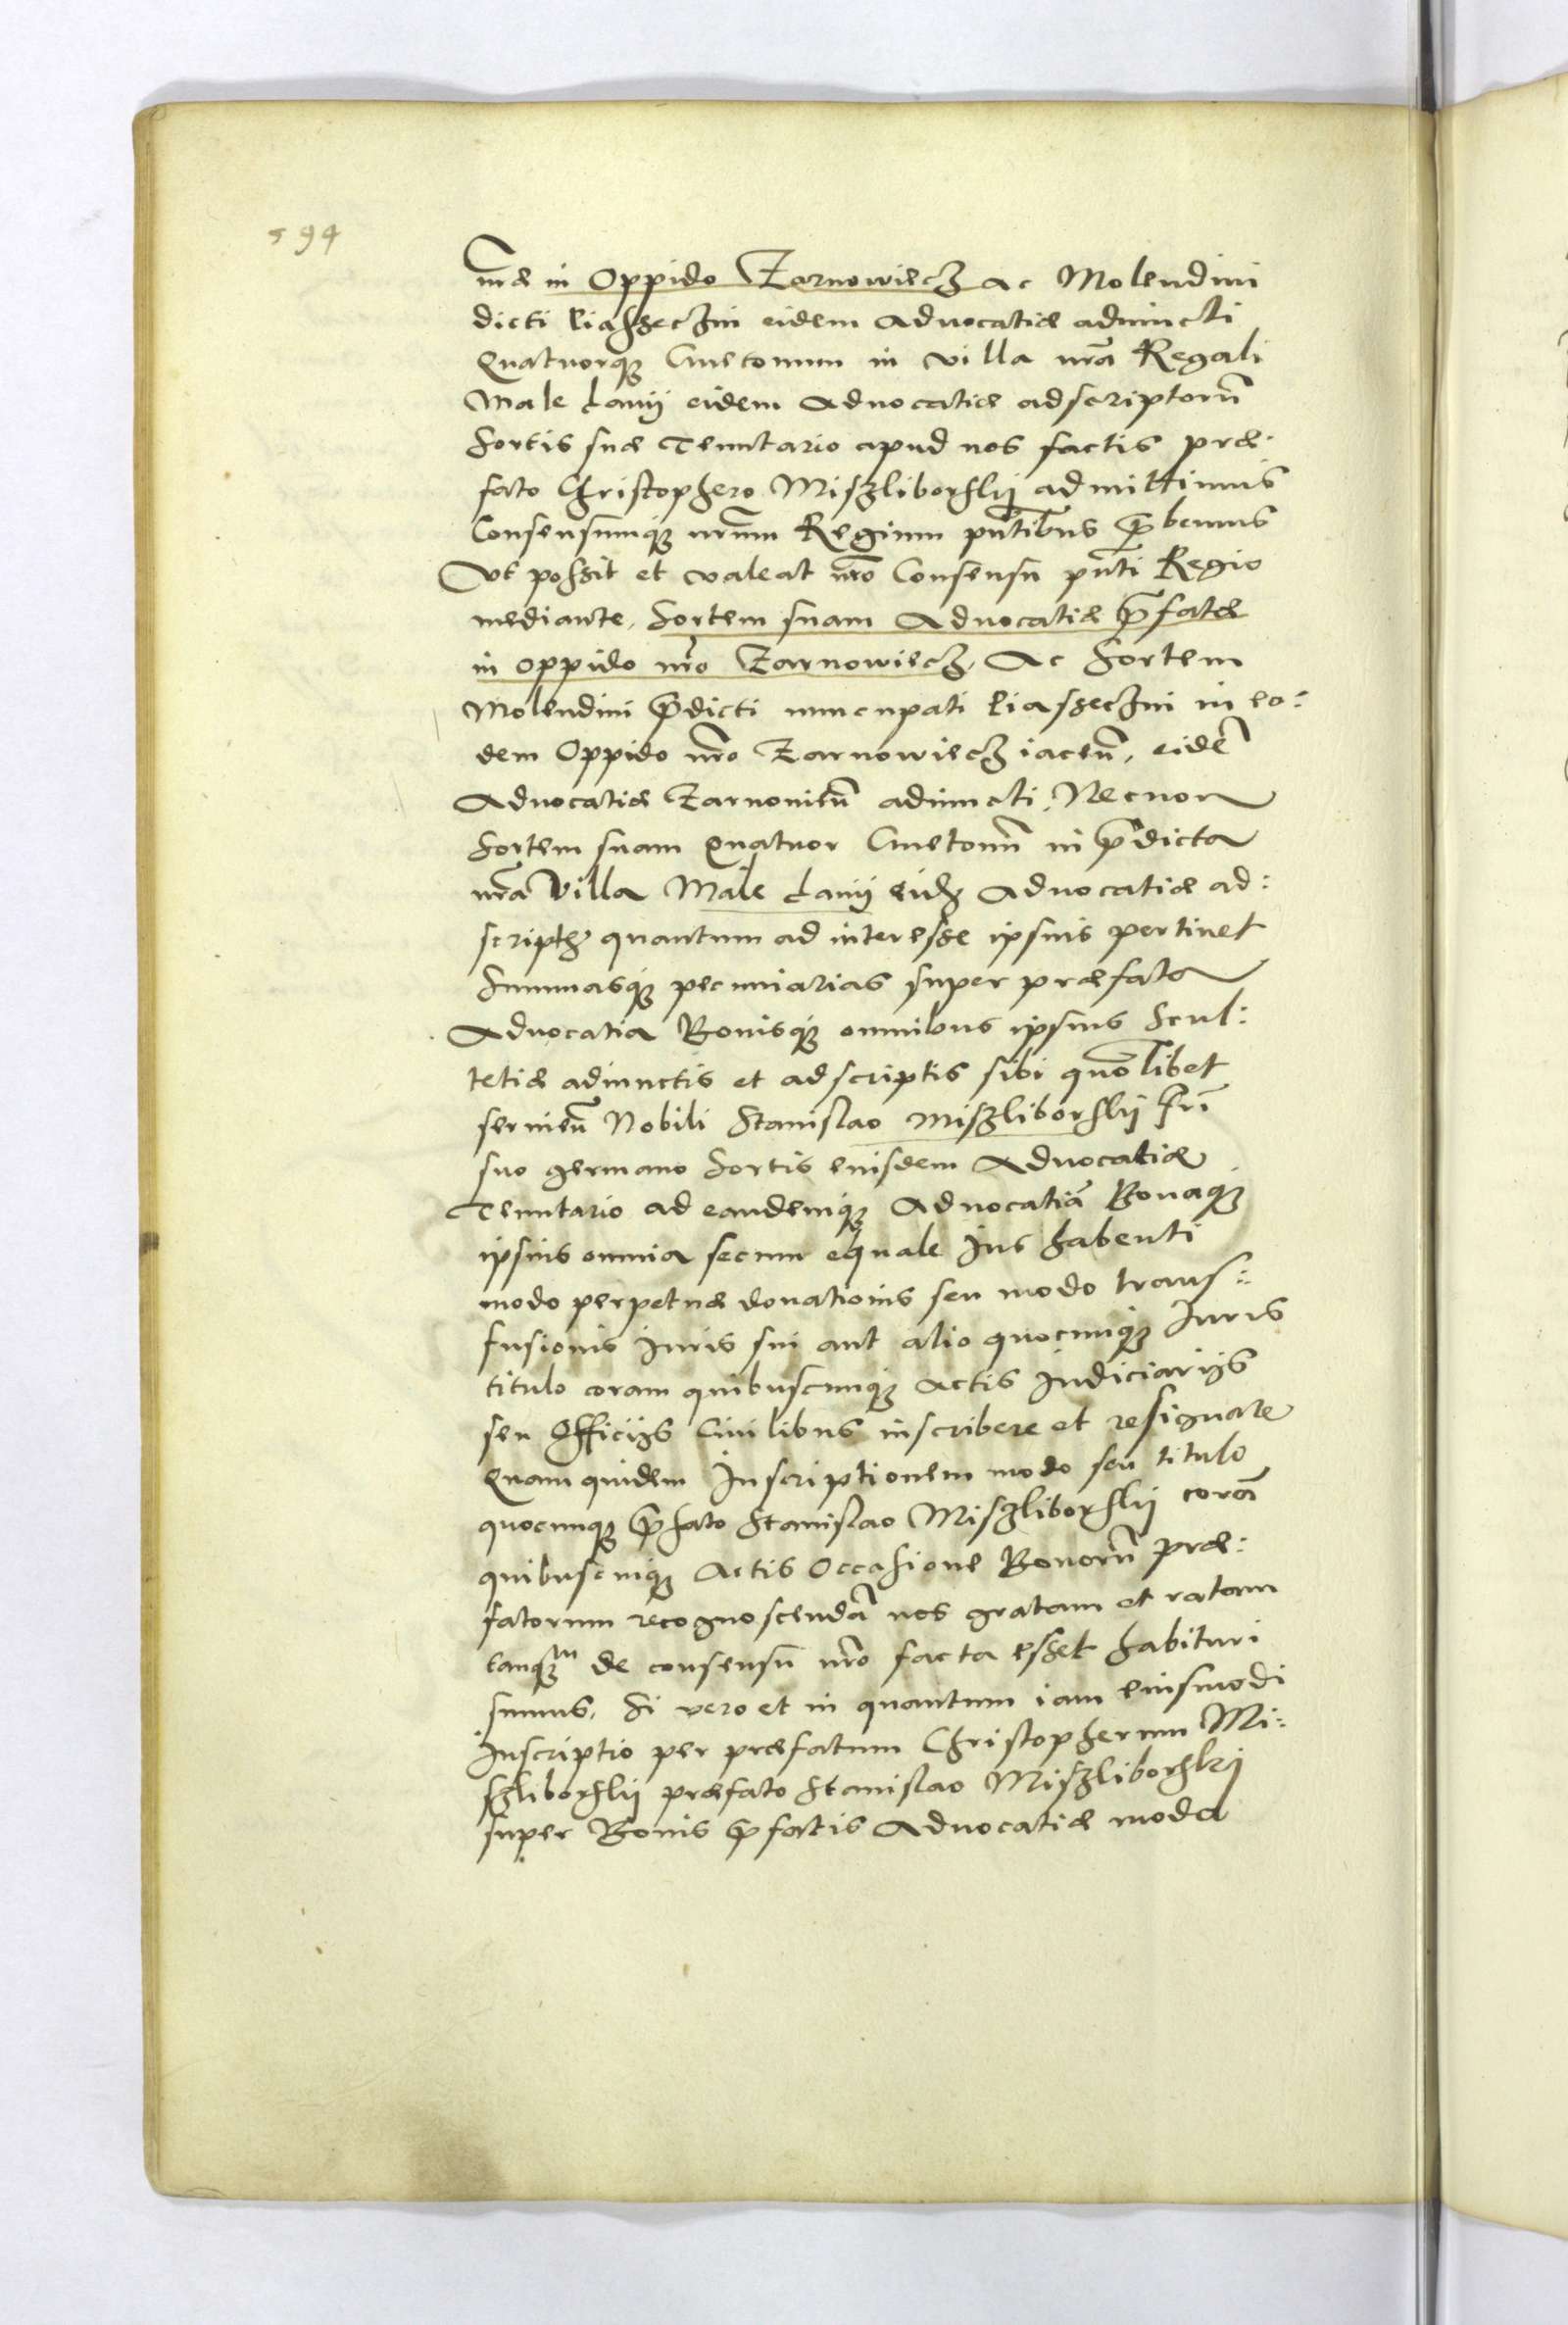 594
nr̃æ in Oppido Zarnowiecz ac Molendini
dicti Piasseczni eidem Advocatiæ adiuncti
Quatuorq; Cmetonum in villa nr̃a Regali
Male Lanij eidem Advocatiæ adscriptorũ
Sortis suæ Tenutario apud nos factis præ:
fato Christophero Miszliborskij admittimus
Consensumq; nrũm Regium pñtibus p̃bemus
Vt possit et valeat nr̃o Consensu pñti Regio
mediante, Sortem suam Advocatiæ p̃fatæ
in oppido nr̃o Zarnowiecz, Ac Sortem
Molendini p̃dicti nuncupati Piasseczni in eo:
dem Oppido nr̃o Zarnowiecz iaceñ, eidẽ
Advocatiæ Zarnovieñ adiuncti, Necnon
Sortem suam Quatuor Cmetonũ in p̃dicta
nr̃a Villa Male Lanij eidẽ Advocatiæ ad:
script. quantum ad interesse ipsius pertinet
Summasq; pecuniarias super præfata
Advocatia Bonisq; omnibus ipsius Scul:
tetiæ adiunctis et adscriptis sibi quõlibet
servieñ Nobili Stanislao Miszliborskij fri̅
suo germano Sortis eiusdem Advocatiæ
Tenutario ad eandemq; Advocatiã Bonaq;
ipsius omnia secum equale Ius habenti
modo perpetuæ donationis seu modo trans:
fusionis Iuris sui aut alio quocunq; Iuris
titulo coram quibuscunq; Actis Iudiciarijs
seu Officijs Civilibus inscribere et resignare
Quam quidem Inscriptionem modo seu titulo
quocunq; p̃fato Stanislao Miszliborskij corã
quibuscunq; Actis Occasione Bonorũ præ:
fatorum recognoscendã nos gratam et ratam
tanq;m de consensu nr̃o facta esset habituri
sumus. Si vero et in quantum iam eiusmodi
Inscriptio per præfatum Christopherum Mi:
szliborskij præfato Stanislao Miszliborskij
super Bonis p̃fatis Advocatiæ modo